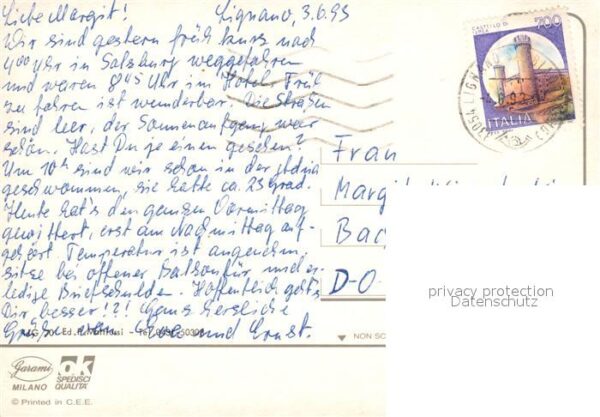 Liebe Margit! Lignano, 3.6.93
Wir sind gestern früh kurz nach
4⁰⁰ Uhr in Salzburg weggefahren
und waren 8⁴⁵ Uhr im Hotel. Früh
zu fahren ist wunderbar. Die Straßen
sind leer, der Sonnenaufgang war
schön. Hast Du je einen gesehen?
Um 10⁰⁰ sind wir schon in der Adria
geschwommen, sie hatte ca. 23 Grad.
Heute hat's den ganzen Vormittag
gewittert, erst am Nachmittag auf-
gehört. Temperatur ist angenehm,
sitze bei offener Balkontür und er-
ledige Briefschulden. Hoffentlich geht's
Dir besser!?! Ganz herzliche
Grüße von und Ernst.
Frau
Margit
Bad
D-O
CASTELLO DI
700
ITALIA
privacy protection
Datenschutz
NON SC
Garami
MILANO
OK
SPEDISCI
QUALITÀ
© Printed in C.E.E.